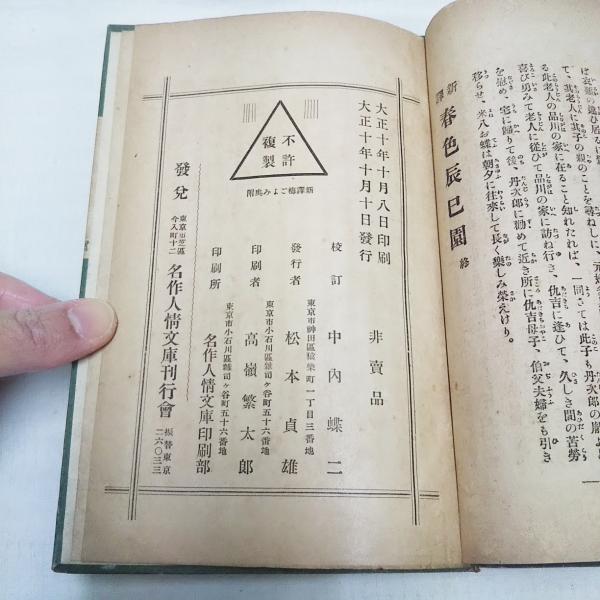 は哀願の遂び居るに
て、其老人に其子の親のことを尋ねしに、元
る此老人の品川の家に在ること知れたれば、一同さては此子も丹次郎の胤よと
喜び勇みて老人に從ひて品川の家に訪ね行き、仇吉に逢ひて、久しき間の苦勞
を慰め、宅に歸りて後、丹次郎に勸めて近き所に仇吉母子、伯父夫婦をも引き
移らせ、米八お蝶は朝夕に往來して長く樂しみ榮えけり。
新譯 春色辰巳園 終
大正十年十月八日印刷
大正十年十月十日發行
非賣品
不許複製
新譯梅ごよみ奧附
校訂 中內蝶二
東京市神田區猿樂町一丁目三番地
發行者 松本貞雄
東京市小石川區雜司ヶ谷町五十六番地
印刷者 高嶺繁太郎
東京市小石川區雜司ヶ谷町五十六番地
印刷所 名作人情文庫印刷部
發兌 東京市芝區今入町十二 名作人情文庫刊行會 振替東京二六〇三三